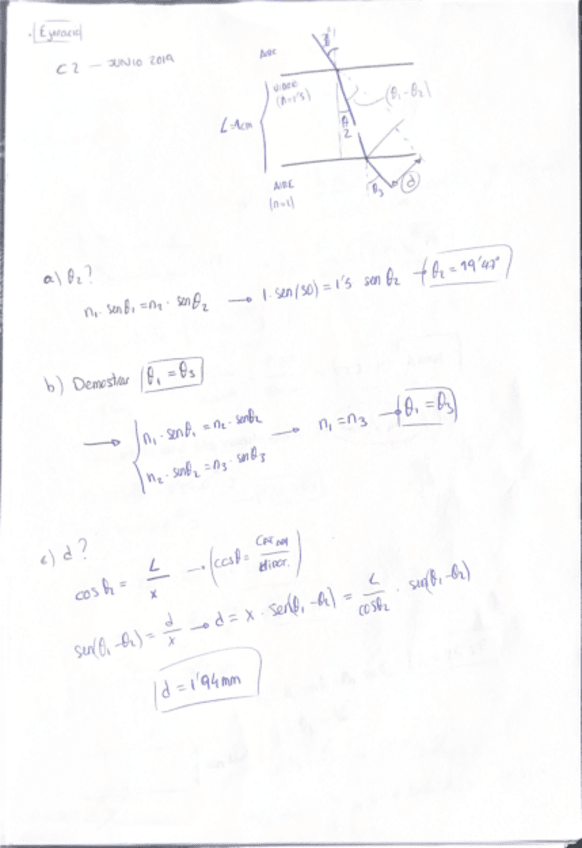 Ejercicio
C2 - JUNIO 2019
AIRE
VIDRIO
(n=1'5)
(θ₁-θ₂)
θ₂
AIRE
(n=1)
θ₃
d
a) θ₂?
n₁· senθ₁ = n₂· senθ₂ → 1·sen(30) = 1'5 senθ₂ → θ₂ = 19'47°
b) Demostrar θ₁ = θ₃
→ { n₁· senθ₁ = n₂· senθ₂ → n₁ = n₃ → θ₁ = θ₃
n₂· senθ₂ = n₃· senθ₃
c) d?
cosθ₂ = L/x → (cosθ =
sen(θ₁-θ₂) = d/x → d = x· sen(θ₁-θ₂) = L/cosθ₂ · sen(θ₁-θ₂)
d = 1'94mm